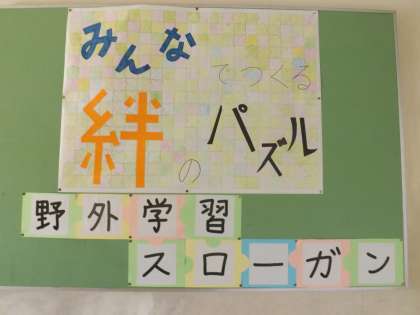 みんな
でつくる
絆の
パズル
野外学習
スローガン